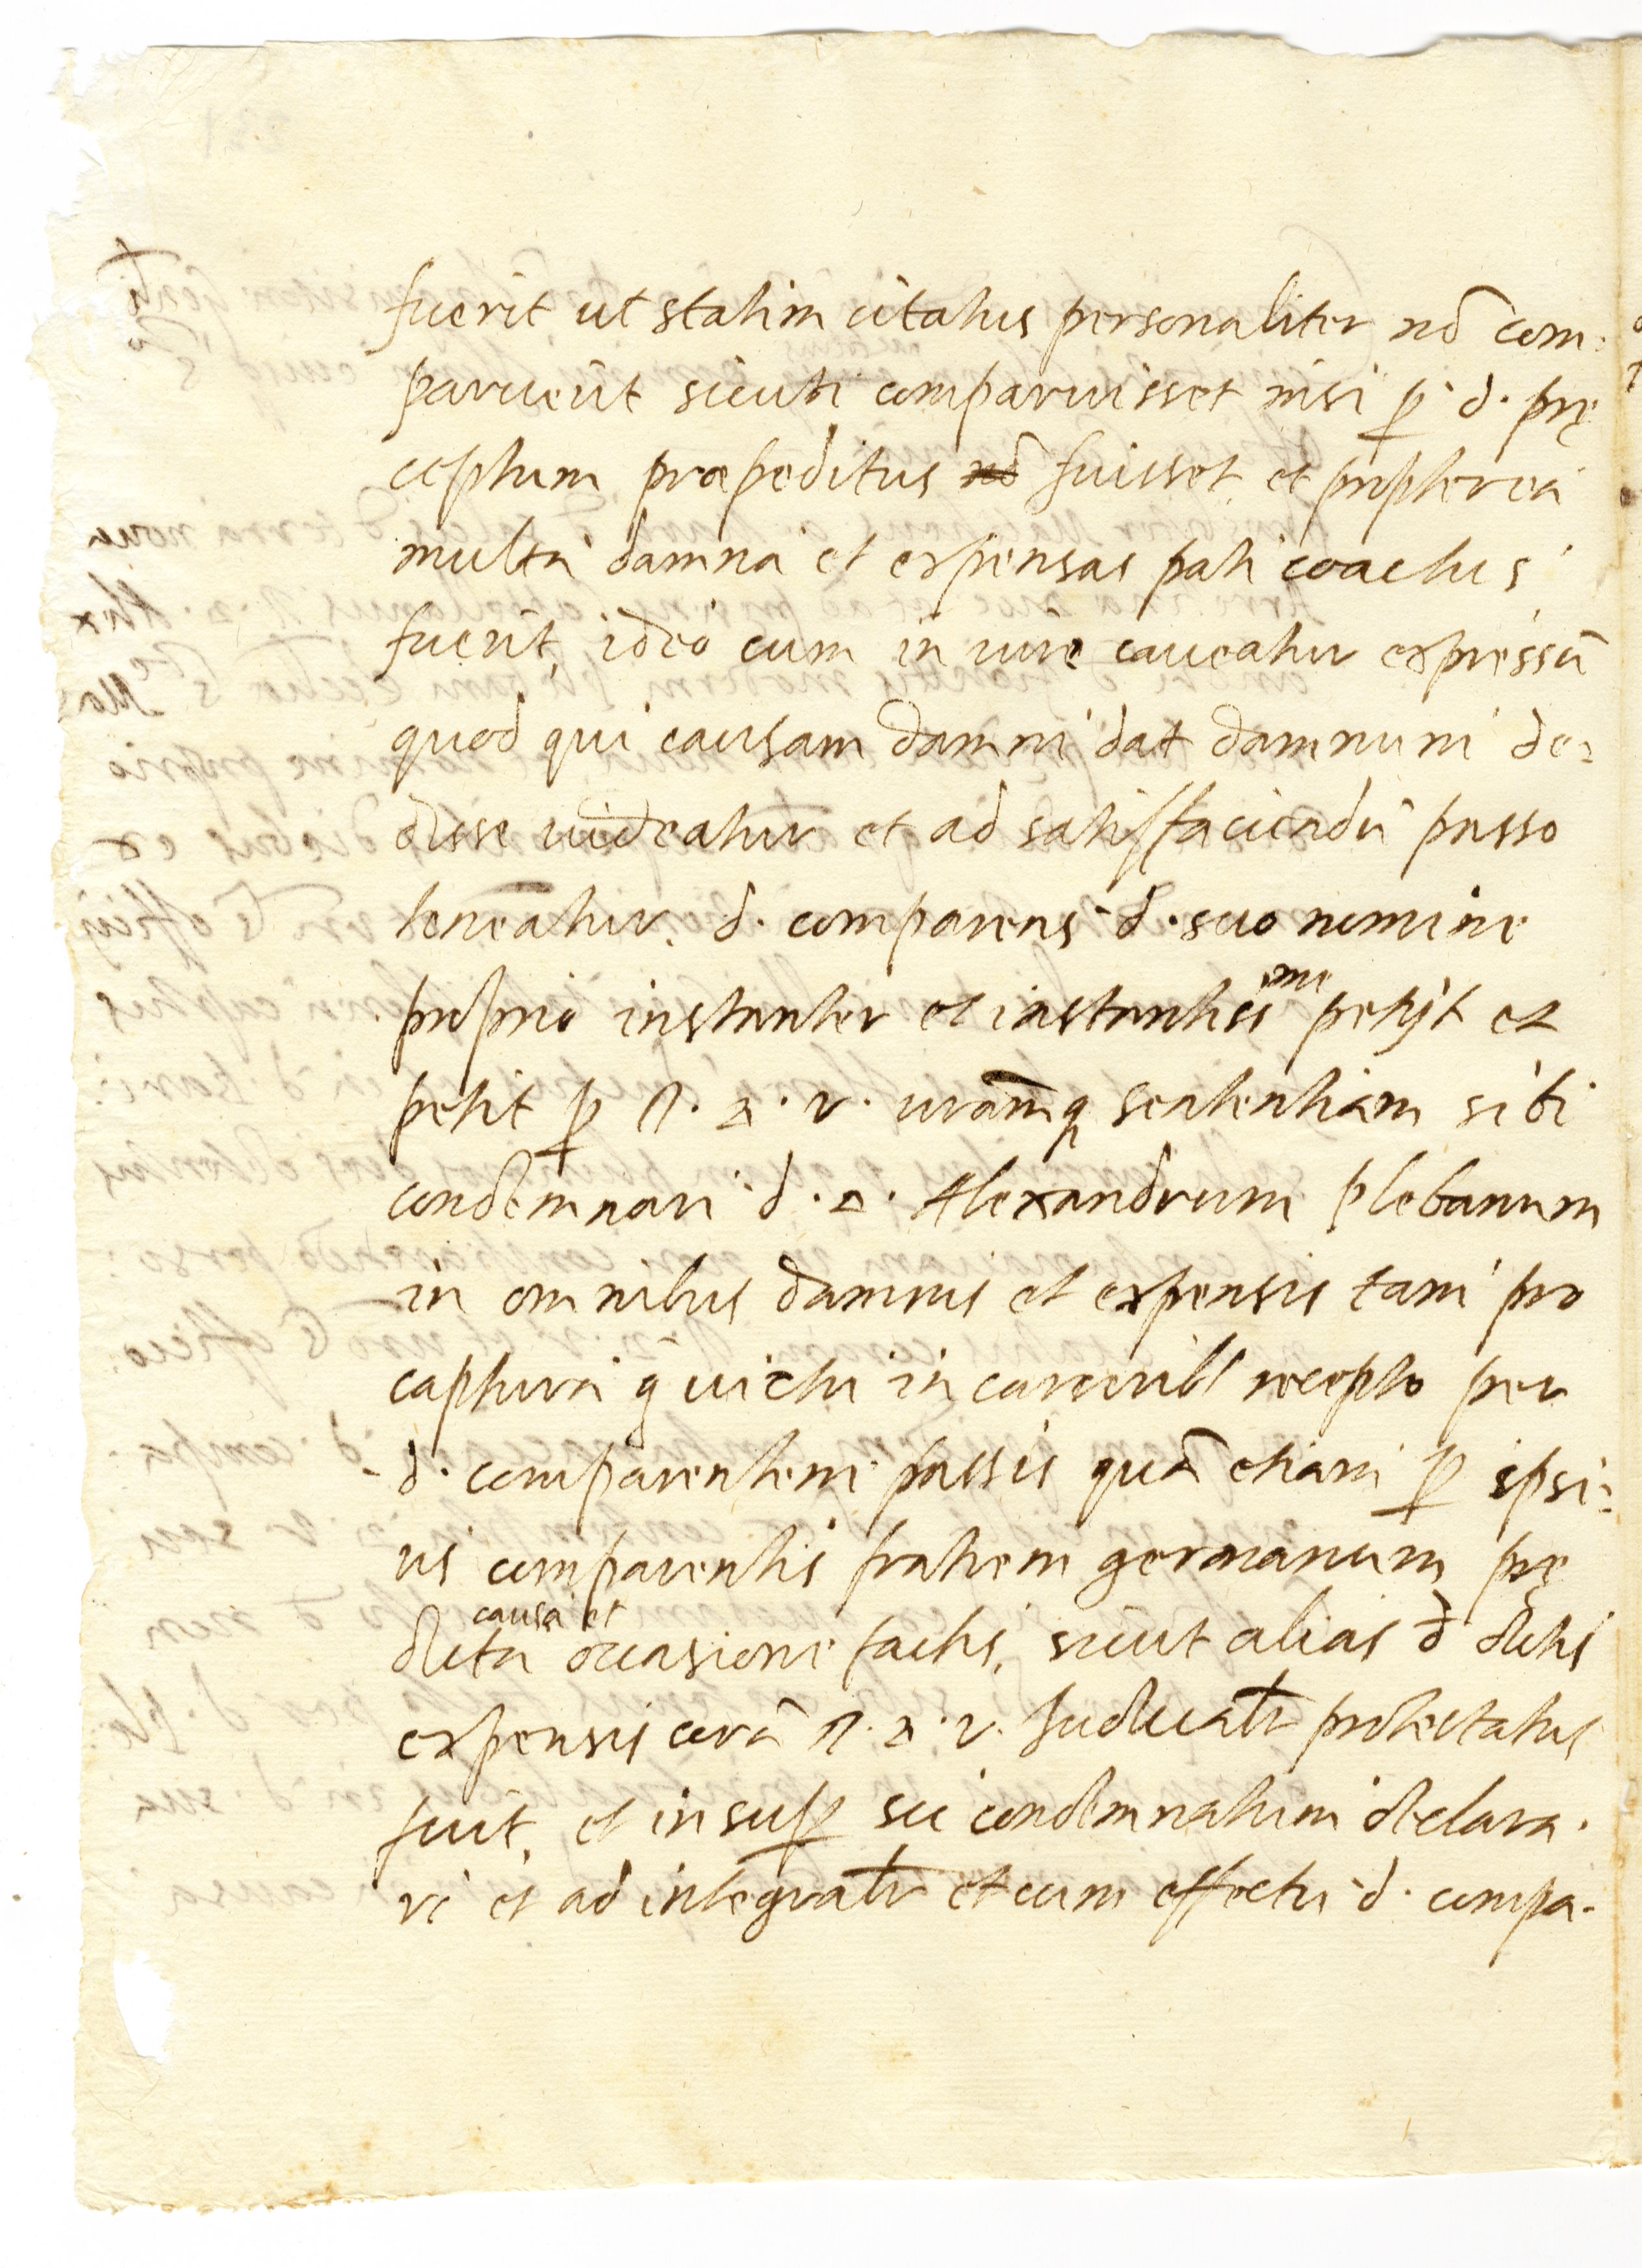 fuerit ut statim citatus personaliter nō com:
paruerit sicuti comparuisset nisi p̱ d. prę
ceptum præpeditus nō fuisset et propterea
multa damna et expensas pati coactus
fuerit, ideo cum in iure caueatur expressū
quod qui causam damni dat damnum de:
disse uideatur et ad satisfaciendū passo
teneatur. d. comparens d. suo nomine
proprio instanter et instantissime petijt et
petit p̱ D. V. uramq̱ sententiam sibi
condemnari d. Alexandrum plebanum
in omnibus damnis et expensis tam pro
captura q̱ uictu in carceribus recepto per
d. comparentem passis quā etiam p̱ ipsi:
us comparentis fratrem germanum prę
causa et
dicta occasione factis, sicut alias đ dictis
expensis corā D. V. iudicialr protestatus
fuit, et insup̱ sic condemnatum declara.
ri et ad integralr et cum effectu d. compa.